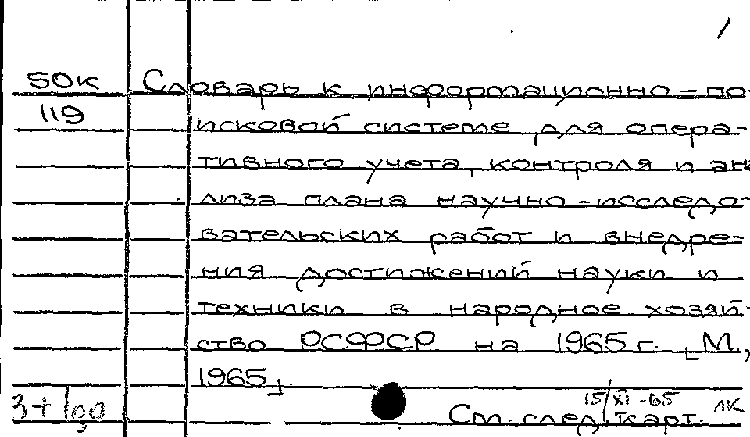 50К Словарь к информационно-по-
119 исковой системе для опера-
тивного учета, контроля и ана
лиза плана научно-исследо-
вательских работ и внедре-
ния достижений науки и
техники в народное хозяй-
ство РСФСР на 1965 г. [М.,
1965]
15/XI-65 ЛК
См. след. карт.